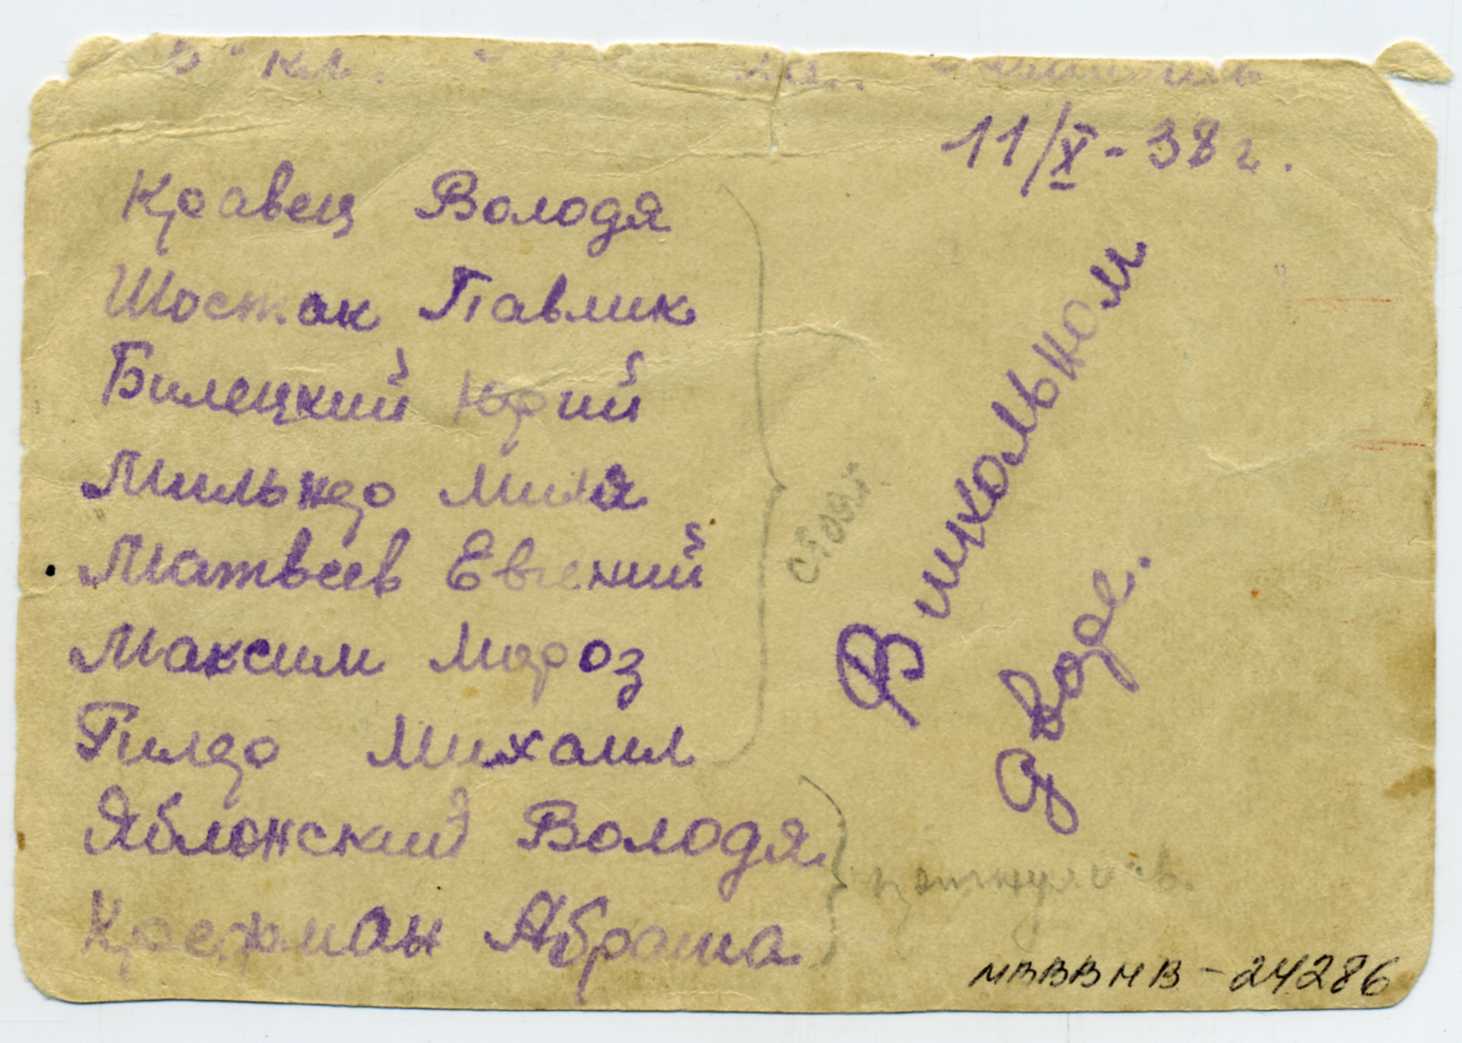 кл.
11/X - 38 г.
Кравец Володя
Шостак Павлик
Билецкий Юрий
Мильндо Миля
Матвеев Евгений
Максим Мороз
Гилдо Михаил
Яблонский Володя
Абраша
стоят
В школьном
дворе.
МВВВНВ - 24286